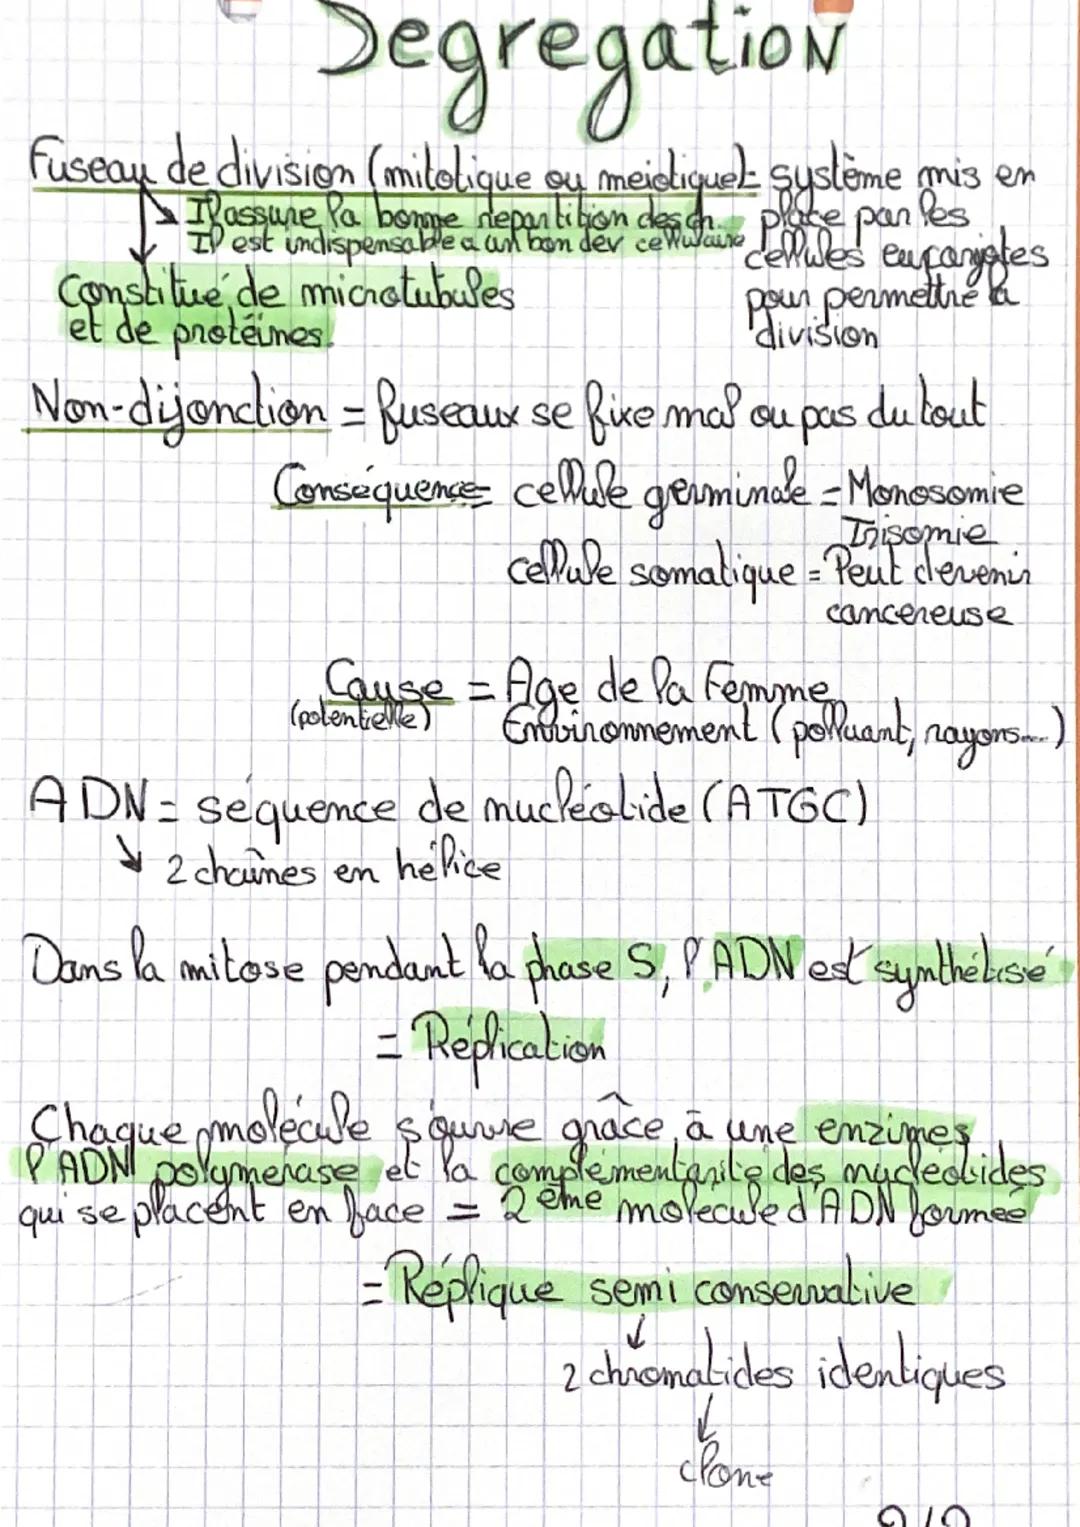 Segregation
Fuseau de division (mitotique ou meiotique) = système mis en
Il assure la bonne repartition des ch. place par les
Il est indispensable a un bon dev cellulaire cellules eucaryotes
Constitué de microtubules pour permettre la
et de protéines. division
Non-dijonction = fuseaux se fixe mal ou pas du tout
Conséquence = cellule germinale = Monosomie
Trisomie
cellule somatique = Peut devenir
cancereuse
Cause = Age de la Femme
(potentielle) Environnement (polluant, rayons....)
ADN = séquence de nucléotide (ATGC)
↘ 2 chaînes en hélice
Dans la mitose pendant la phase S, l'ADN est synthétisé
= Réplication
Chaque molécule s'ouvre grâce à une enzimes
l'ADN polymerase et la complémentarité des nucléotides
qui se placent en face = 2ème molecule d'ADN formée
= Réplique semi conservative
↓
2 chromatides identiques
↓
clone